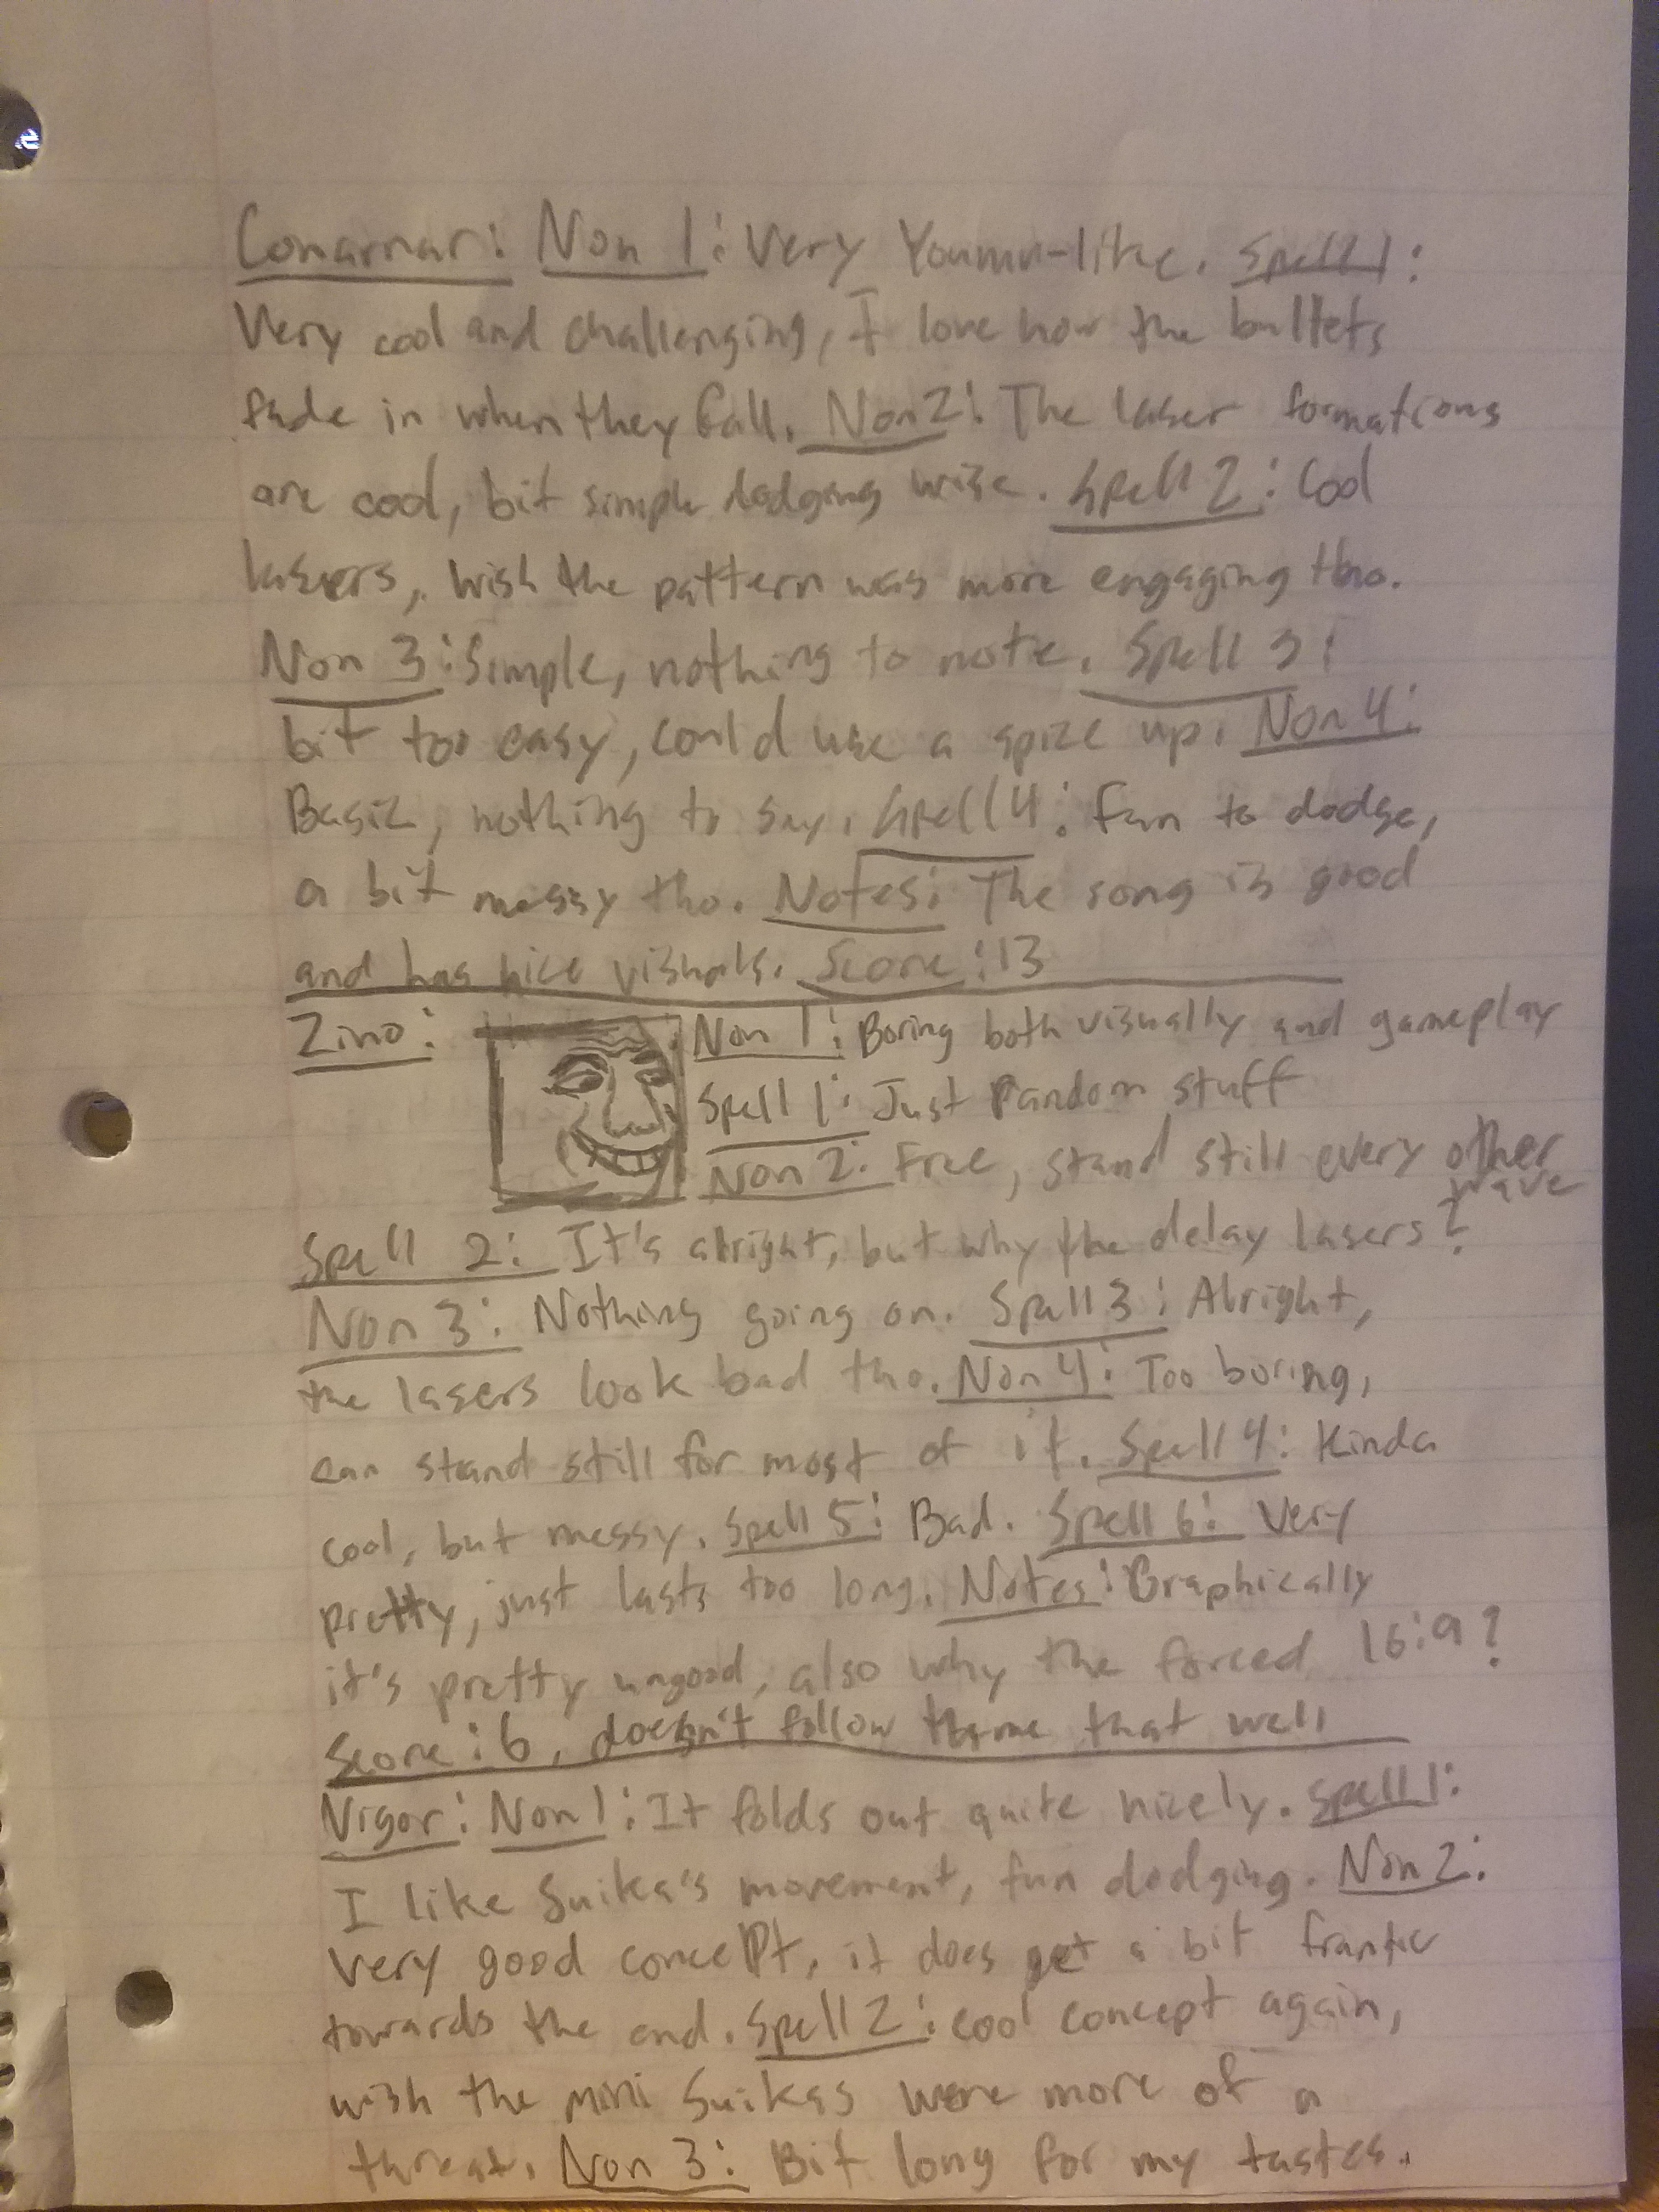 Conarnar: Non 1: Very Youmu-like. Spell 1:
Very cool and challenging, I love how the bullets
fade in when they fall. Non 2: The laser formations
are cool, bit simple dodging wise. Spell 2: Cool
lasers, wish the pattern was more engaging tho.
Non 3: Simple, nothing to note. Spell 3:
bit too easy, could use a spice up. Non 4:
Basic, nothing to say. Spell 4: Fun to dodge,
a bit messy tho. Notes: The song is good
and has nice visuals. Score: 13
Zino: Non 1: Boring both visually and gameplay
Spell 1: Just Random stuff
Non 2: Free, stand still every other
wave
Spell 2: It's alright, but why the delay lasers?
Non 3: Nothing going on. Spell 3: Alright,
the lasers look bad tho. Non 4: Too boring,
can stand still for most of it. Spell 4: Kinda
cool, but messy. Spell 5: Bad. Spell 6: Very
pretty, just lasts too long. Notes: Graphically
it's pretty ungood, also why the forced 16:9?
Score: 6, doesn't follow theme that well
Nigor: Non 1: It folds out quite nicely. Spell 1:
I like Suika's movement, fun dodging. Non 2:
Very good concept, it does get a bit frantic
towards the end. Spell 2: cool concept again,
wish the mini Suikas were more of a
threat. Non 3: Bit long for my tastes.